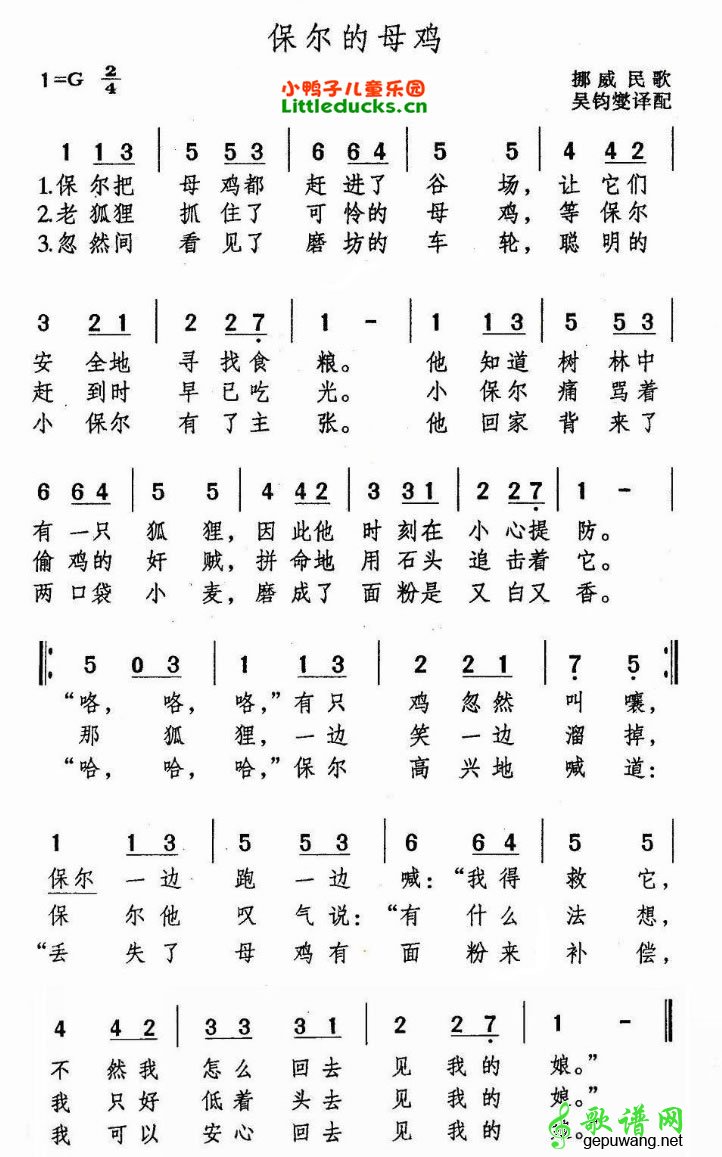 保尔的母鸡
1=G 2/4
小鸭子儿童乐园
Littleducks.cn
挪威民歌
吴钧燮译配
1 1 3 | 5 5 3 | 6 6 4 | 5 5 | 4 4 2 |
1.保尔把 母鸡都 赶进了 谷场，让它们
2.老狐狸 抓住了 可怜的 母鸡，等保尔
3.忽然间 看见了 磨坊的 车轮，聪明的
3 2 1 | 2 2 7 | 1 - | 1 1 3 | 5 5 3 |
安全地 寻找食 粮。 他知道 树林中
赶到时 早已吃 光。 小保尔 痛骂着
小保尔 有了主 张。 他回家 背来了
6 6 4 | 5 5 | 4 4 2 | 3 3 3 1 | 2 2 7 | 1 - |
有一只 狐狸，因此他 时刻在 小心提 防。
偷鸡的 奸贼，拼命地 用石头 追击着 它。
两口袋 小麦，磨成了 面粉是 又白又 香。
5 0 3 | 1 1 3 | 2 2 1 | 7 5
“咯，咯，咯，”有只 鸡忽然 叫嚷，
那狐狸，一边 笑一边 溜掉，
“哈，哈，哈，”保尔 高兴地 喊道：
1 1 3 | 5 5 3 | 6 6 4 | 5 5 |
保尔一边 跑一边 喊：“我得 救它，
保尔他 叹气说：“有什么 法想，
“丢失了 母鸡有 面粉来 补偿，
4 4 2 | 3 3 3 1 | 2 2 7 | 1 -
不然我 怎么回去 见我的 娘。”
我只好 低着头去 见我的 娘。”
我可以 安心回去 见我的 娘。”
歌谱网
gepuwang.net